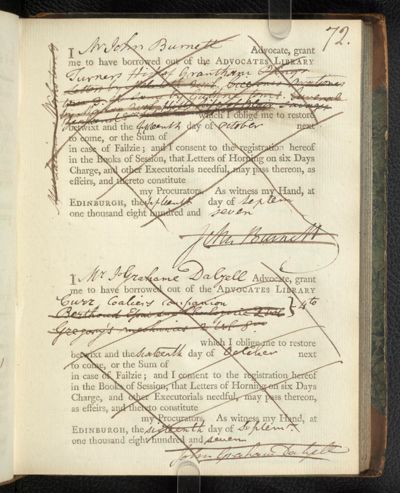 72.
I Mr John Burnett Advocate, grant
me to have borrowed out of the ADVOCATES LIBRARY
Turners Histor Grantham
which I oblige me to restore
betwixt and the fifteenth day of October next
to come, or the Sum of
in case of Failzie; and I consent to the registration hereof
in the Books of Session, that Letters of Horning on six Days
Charge, and other Executorials needful, may pass thereon, as
effeirs, and thereto constitute
my Procurators. As witness my Hand, at
EDINBURGH, the fifteenth day of Septem
one thousand eight hundred and seven
John Burnett
I Mr J Grahame Dalyell Advocate, grant
me to have borrowed out of the ADVOCATES LIBRARY
Curr, Coaliers Companion
4to
Gregory's mechanics 2 Vol 8vo
which I oblige me to restore
betwixt and the sixteenth day of October next
to come, or the Sum of
in case of Failzie; and I consent to the registration hereof
in the Books of Session, that Letters of Horning on six Days
Charge, and other Executorials needful, may pass thereon,
as effeirs, and thereto constitute
my Procurators. As witness my Hand, at
EDINBURGH, the sixteenth day of Septemr
one thousand eight hundred and seven
John Graham Dalyell